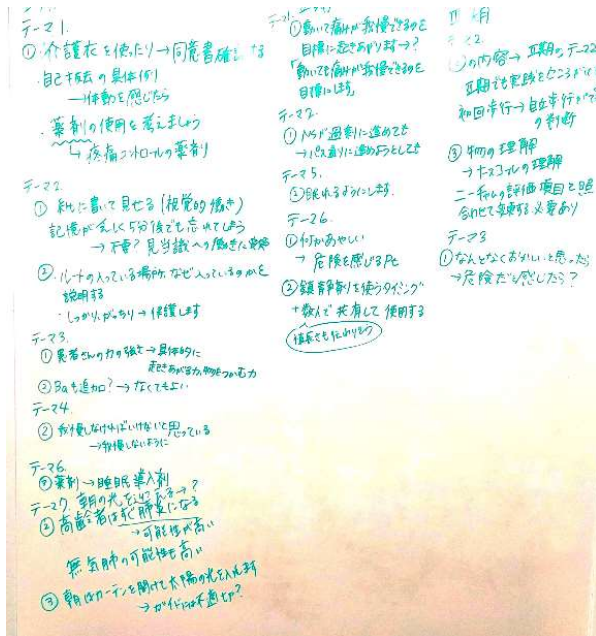 テーマ1.
① 介護衣を使ったり→同意書確
・自己抜去の具体例
→体動を感じたら
・薬剤の使用を考えましょう
↳疼痛コントロールの薬剤
テーマ2
① 紙に書いて見せる(視覚的働き)
記憶が 5分後でも忘れてしまう
→不要?見当識への働きに
②ルートの入っている場所、なぜ入っているのかを
説明する
・しっかり、がっちり→保護します
テーマ3.
① 患者さんの力の強さ→具体的に
起きあがる力、物をつかむ力
② 3aも追加?→なくてもよい
テーマ4.
② 我慢しなければいけないと思っている
→我慢しないように
テーマ6.
薬剤→睡眠導入剤
テーマ7. 朝の光を →?
② 高齢者はすぐ肺炎になる
→可能性が高い
無気肺の可能性も高い
③ 朝はカーテンを開けて太陽の光を入れます
→ガイドには不適切?
①動いて痛みが我慢できるのを
目標に起きあがります→?
「動いても痛みが我慢できるのを
目標にします」
テーマ2.
① Nsが過剰に進めても
→パス通りに進めようとしても
テーマ5.
② 眠れるようにします.
テーマ6.
①何かあやしい
→危険を感じるPt
②鎮静剤を使うタイミング
数人で共有して使用する
Ⅲ期
の内容→Ⅲ期のテーマ2
初回歩行→自立歩行が
の判断
の理解
→ナースコールの理解
ニーチャムの評価項目と照
合わせて 必要あり
テーマ3
①なんとなくおかしいと思ったら
→危険だと感じたら?